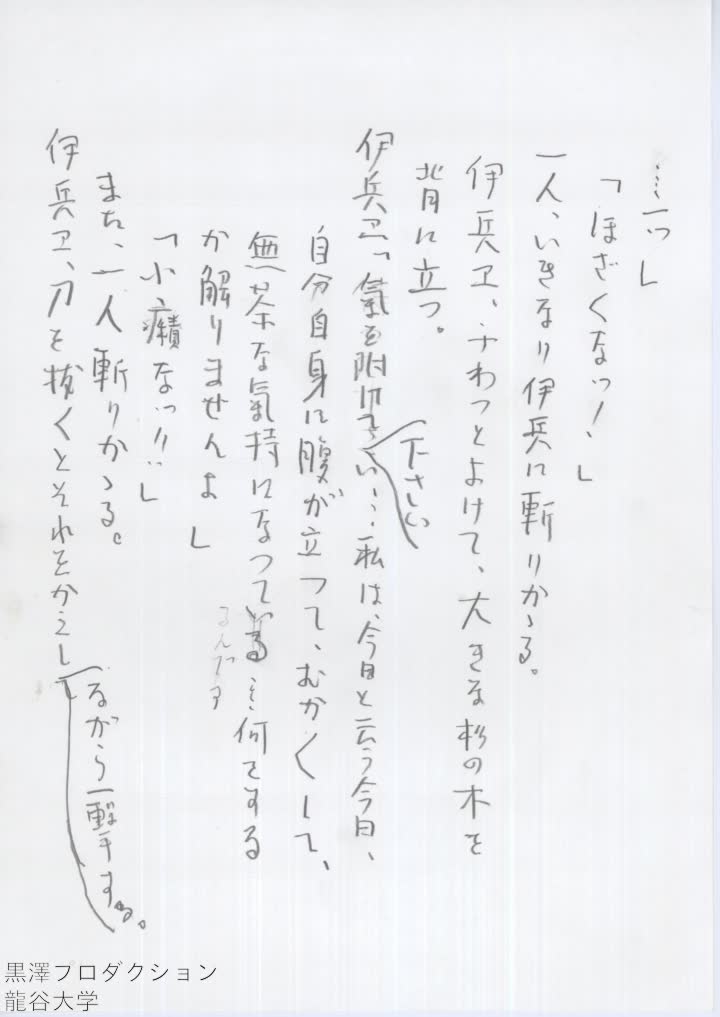 …ッ」
「ほざくなッ！」
一人、いきなり伊兵に斬りかゝる。
伊兵ヱ、ふわっとよけて、大きな杉の木を
背に立つ。
伊兵ヱ「氣を附けて下さい…私は、今日と云う今日、
自分自身に腹が立つて、むかくして、
無茶な氣持になつている…何をする
るんです
か解りませんよ」
「小癪なッ！！」
また、一人斬りかゝる。
伊兵ヱ、刀を抜くとそれをかえし
ながら一撃する。
黒澤プロダクション
龍谷大学